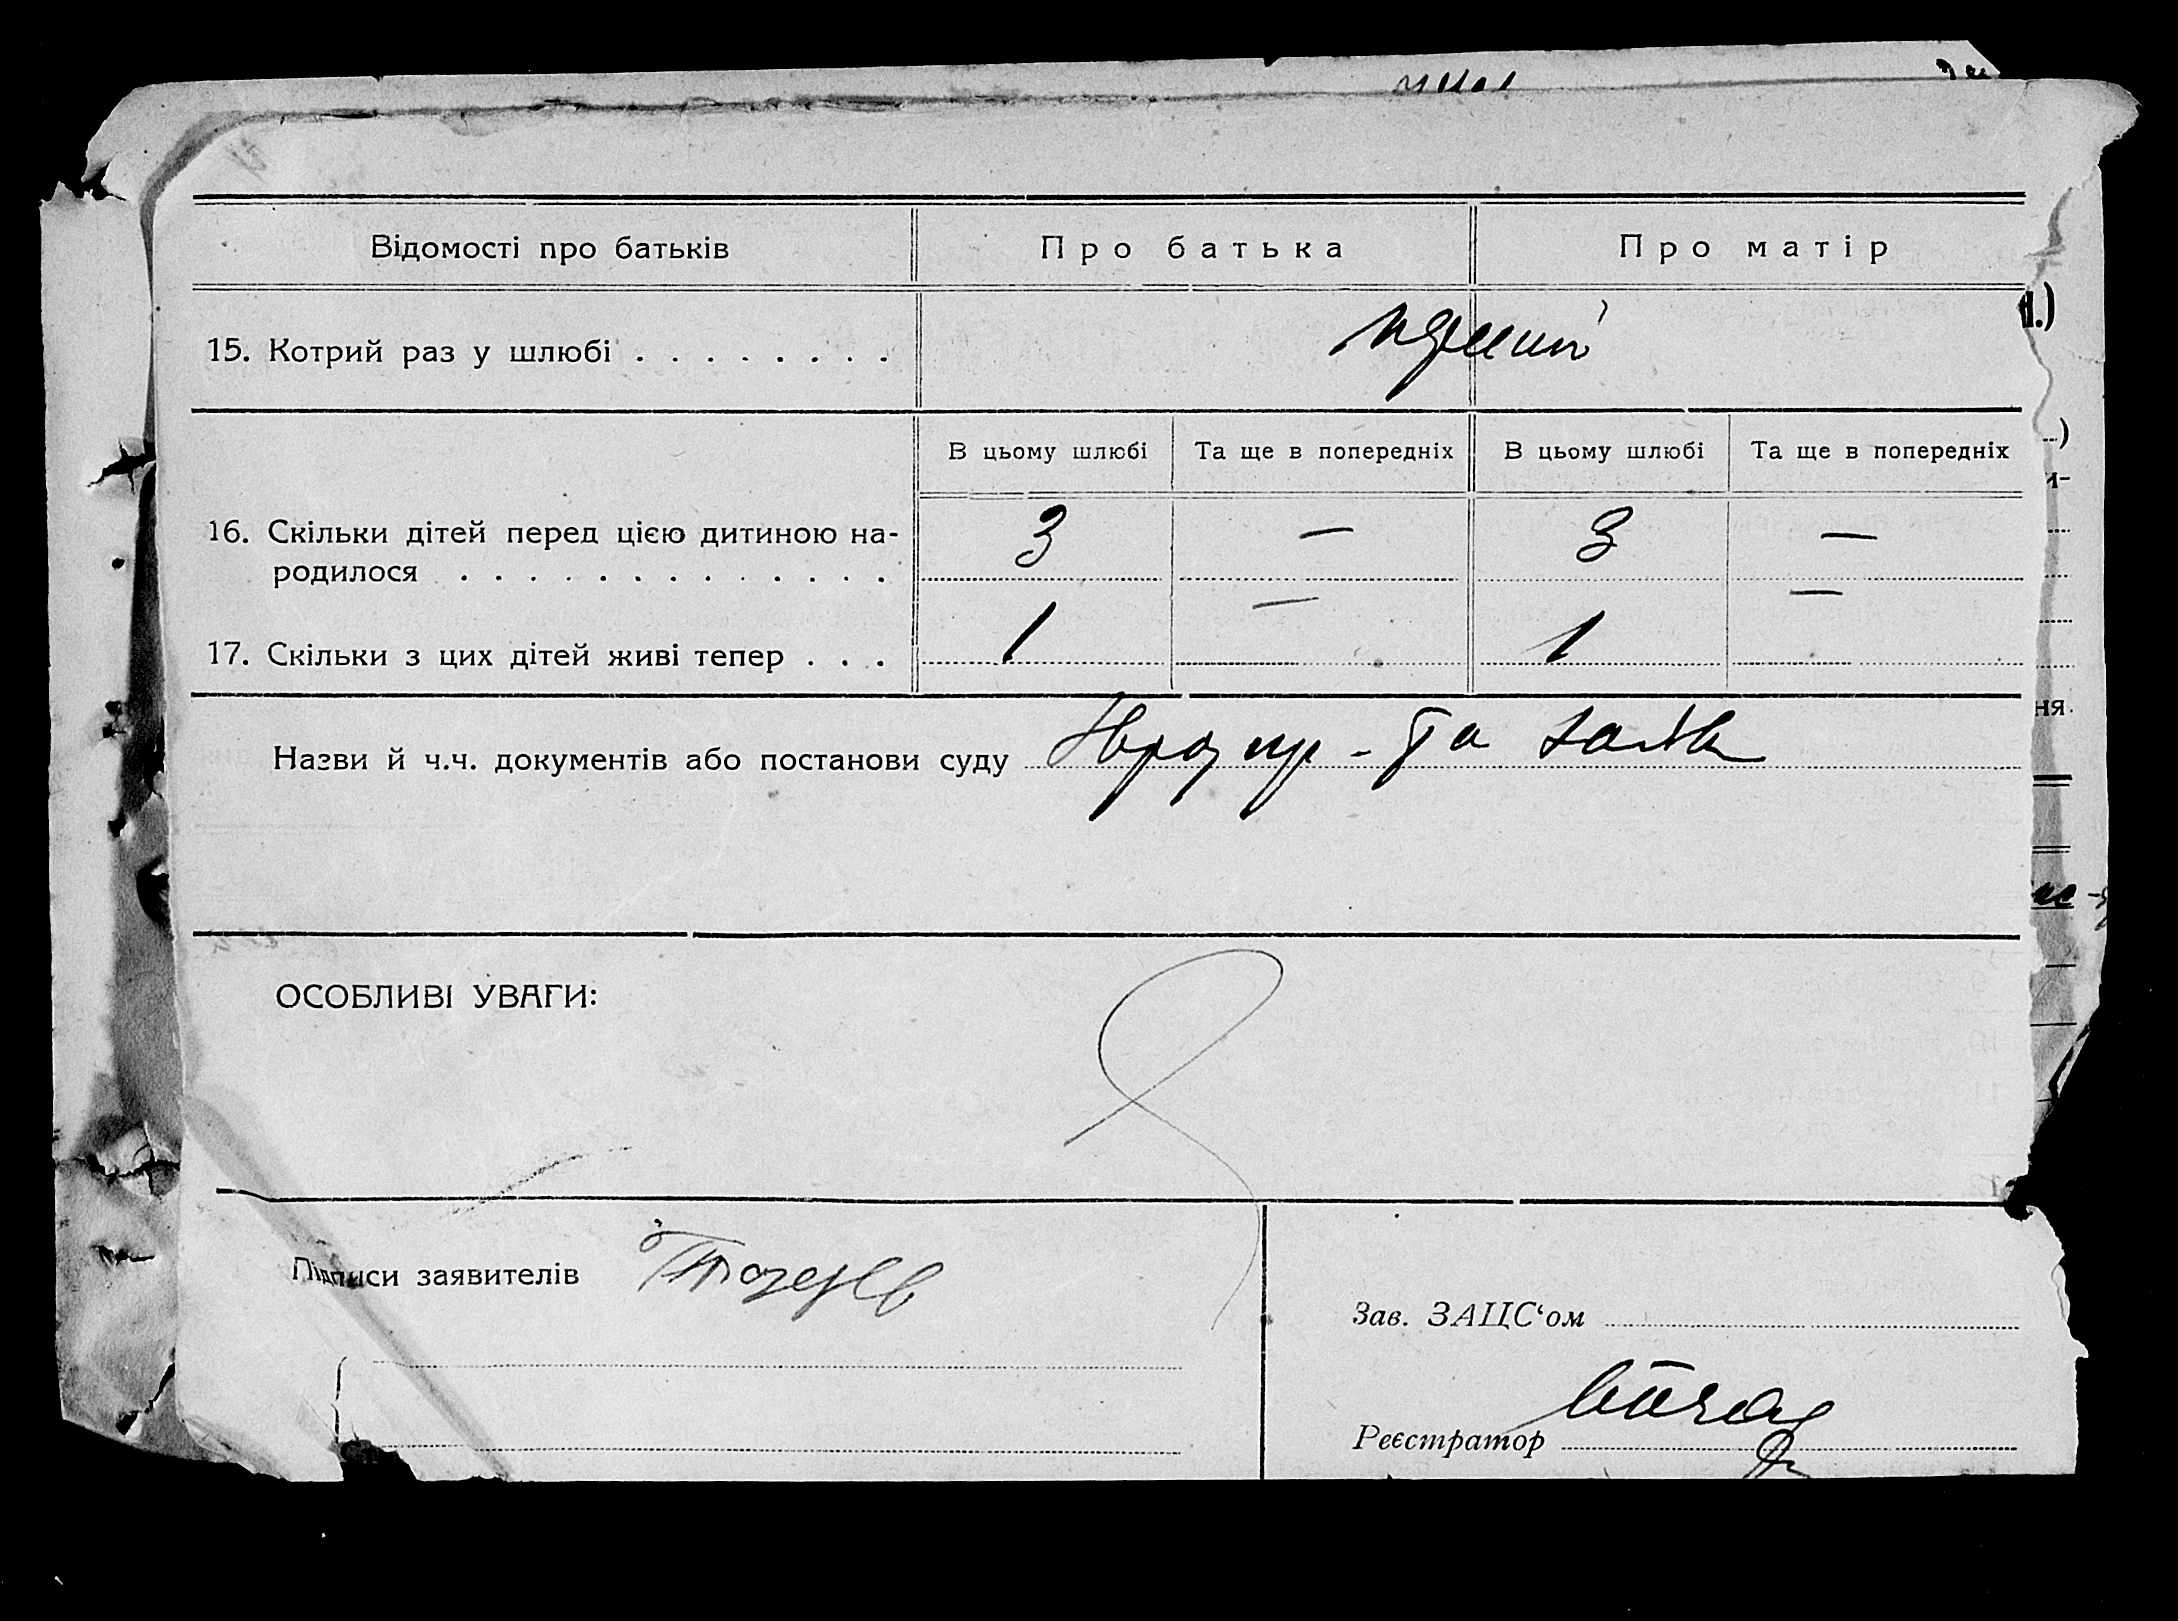 Відомості про батьків
Про батька
Про матір
15. Котрий раз у шлюбі . . . . . . . .
В цьому шлюбі
Та ще в попередніх
В цьому шлюбі
Та ще в попередніх
16. Скільки дітей перед цією дитиною на-
родилося . . . . . . . . . . . . .
3 — 3 —
17. Скільки з цих дітей живі тепер . . .
1 — 1 —
Назви й ч.ч. документів або постанови суду
та
ОСОБЛИВІ УВАГИ:
Підписи заявителів
Зав. ЗАЦС‘ом
Реєстратор